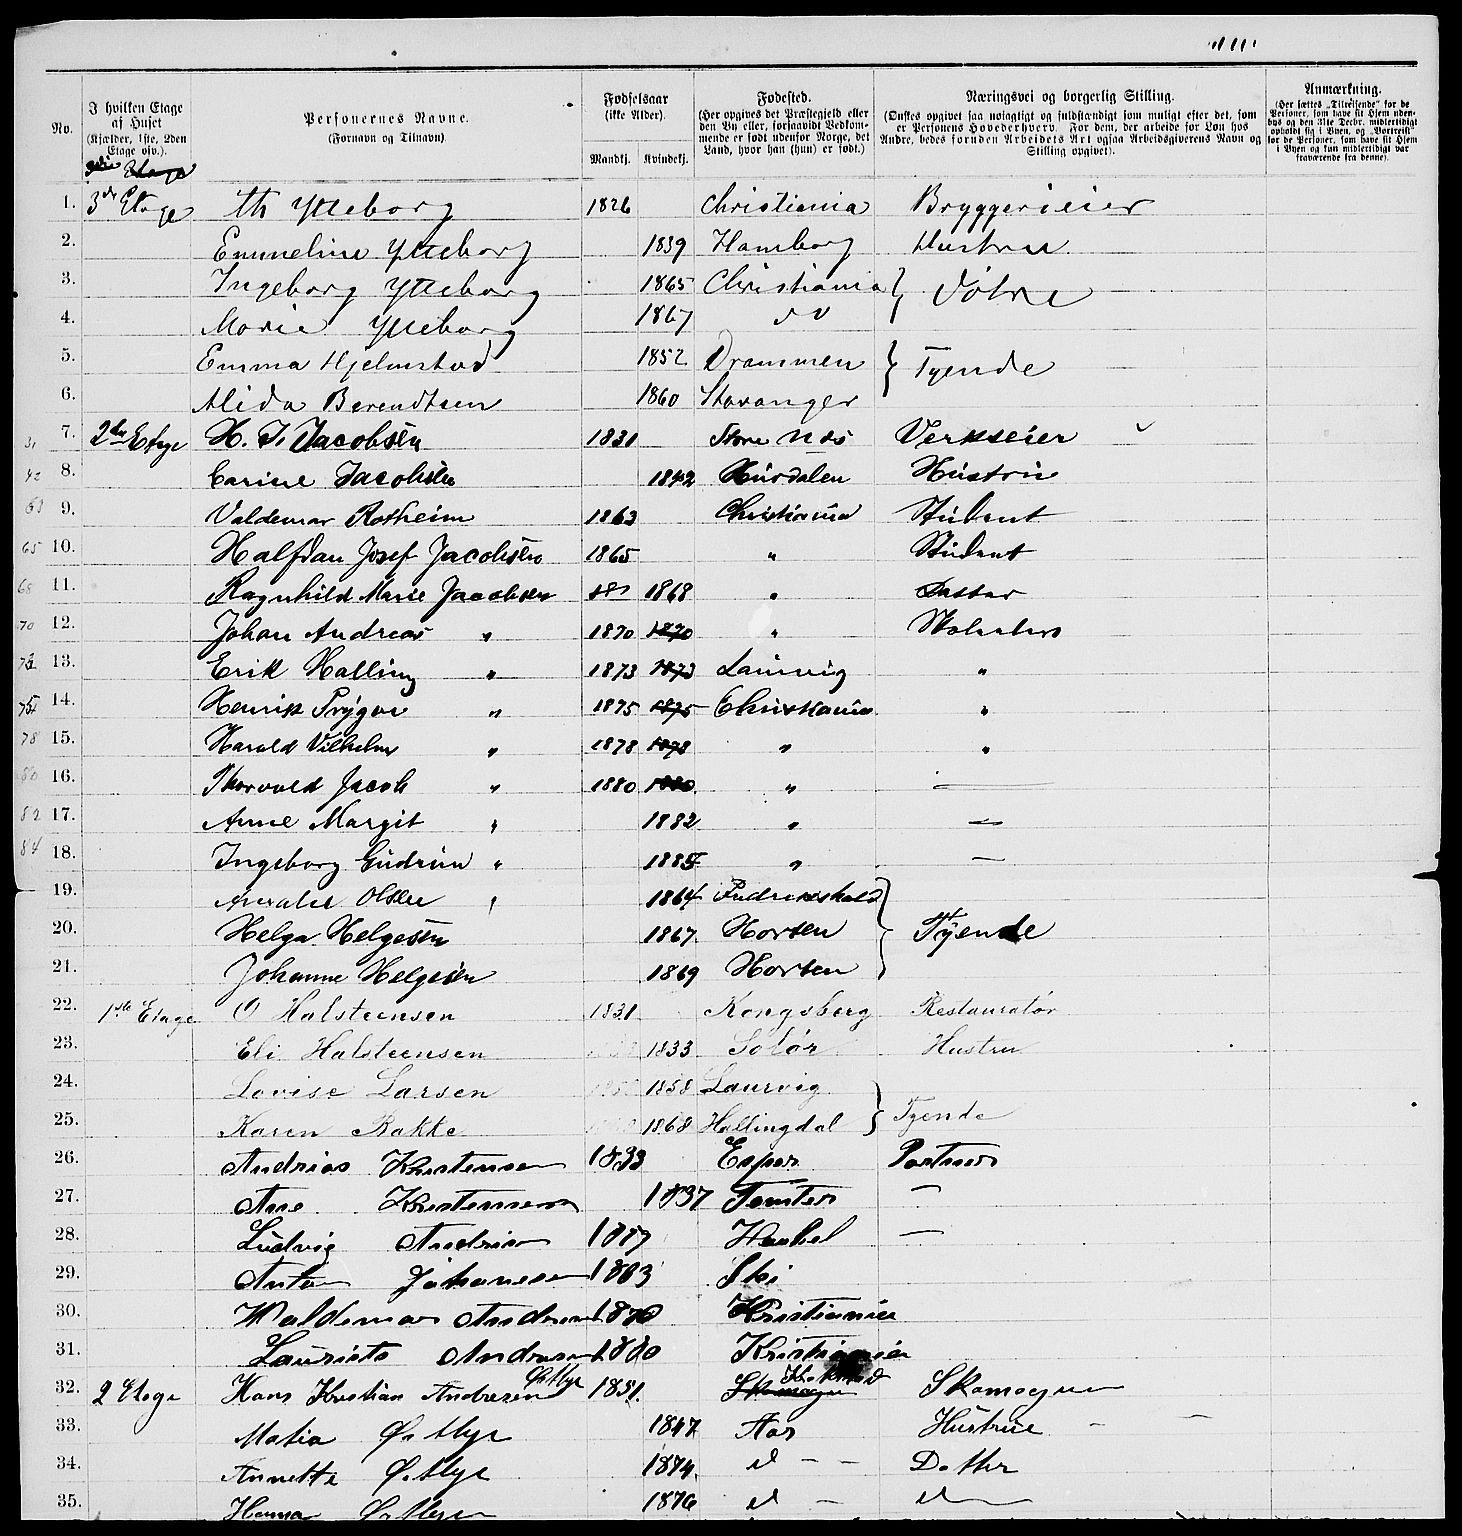 No.
I hvilken Etage af Huset (Kjælder, 1ste, 2den Etage osv.).
Personernes Navne. (Fornavn og Tilnavn).
Fødselsaar (ikke Alder). Mandkj. Kvindekj.
Fødested. (Her opgives det Præstegjeld eller den By eller, forsaavidt Vedkommende er født udenfor Norge, det Land, hvor han (hun) er født.)
Næringsvei og borgerlig Stilling. (Ønskes opgivet saa nøiagtigt og fuldstændigt som muligt efter det, som er Personens Hovederhverv. For dem, der arbeide for Løn hos Andre, bedes foruden Arbeidets Art ogsaa Arbeidsgiverens Navn og Stilling opgivet).
Anmærkning. (Her sættes „Tilreisende" for de Personer, som have sit Hjem udenbys og den 31te Decbr. midlertidigt opholdt sig i Byen, og „Bortreist" for de Personer, som have sit Hjem i Byen og kun midlertidigt var fraværende fra denne).
1. 3de Etage Th Ytteborg 1826 Christiania Bryggerieier
2. Emmeline Ytteborg 1839 Hamborg Hustru
3. Ingeborg Ytteborg 1865 Christiania } Døtre
4. Marie Ytteborg 1867
5. Emma Hjelmstad 1852 Drammen } Tyende
6. Alida Berendtsen 1860 Stavanger
31 7. 2den Etage H. J. Jacobsen 1831 Store Næs Verkseier
42 8. Carine Jacobsen 1842 Hurdalen Hustru
63 9. Valdemar Rotheim 1863 Christiania Student
65 10. Halfdan Josef Jacobsen 1865 " Student
68 11. Ragnhild Marie Jacobsen 187 1868 " Datter
70 12. Johan Andreas " 1870 1870 " Skoleelev
73 13. Erik Halling " 1873 1873 Laurvig "
75 14. Henrik Trygve " 1875 1875 Christiania "
78 15. Harald Vilhelm " 1878 1878 " "
80 16. Thorvald Jacob " 1880 1880 " —
82 17. Anne Margit " 1882 " —
84 18. Ingeborg Gudrun " 1885 " —
19. Amalie Olsen 1864 Fredrikshald }
20. Helga Helgesen 1867 Horten } Tyende
21. Johanne Helgesen 1869 Horten
22. 1ste Etage O Halsteensen 1831 Kongsberg Restauratør
23. Eli Halsteensen 1833 Solør Hustru
24. Lovise Larsen 1858 Laurvig }
25. Karen Bakke 1868 Hallingdal } Tyende
26. Andrias Kristensen 1833 Portner
27. Ane Kristensen 1837 Tomter —
28. Ludvig Andrias —
29. Anton Johansen 1863 Ski
30. Waldemar Andresen 1870 Kristiania
31. Laurits Andresen 1880 Kristiania
32. 2 Etage Hans Kristian Andresen Østbye 1851. Skomager Skomager
33. Østbye 1847 Aas Hustrue
34. Annette Østbye 1874. d — — Datter
35. Østbye 1876 d — d —